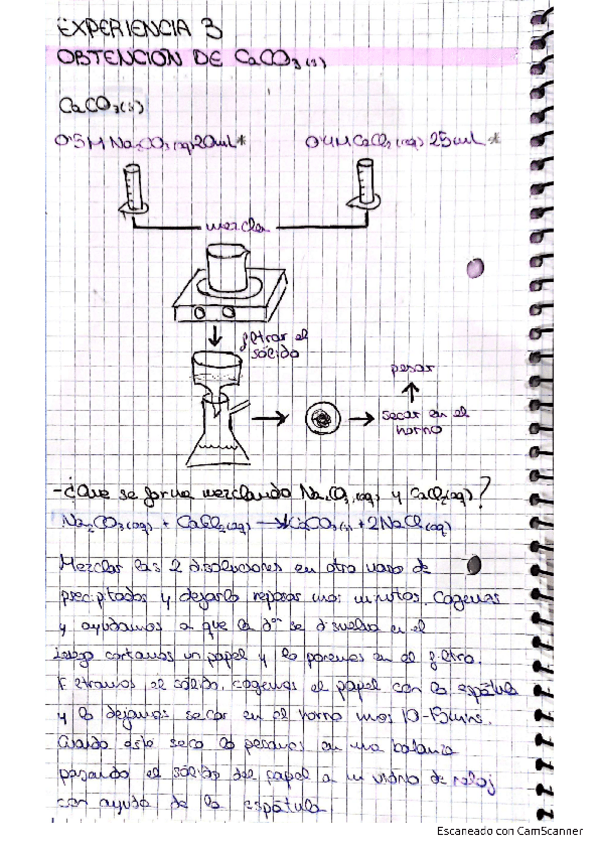 EXPERIENCIA 3
OBTENCION DE CaCO3(s)
CaCO3(s)
0.5M Na2CO3(aq) 20mL* 0.4M CaCl2(aq) 25mL*
mezcla
filtrar el
sólido
pesar
secar en el
horno
- ¿Que se forma mezclando Na2CO3(aq) y CaCl2(aq)?
Na2CO3(aq) + CaCl2(aq) → CaCO3(s) + 2NaCl(aq)
Mezclar las 2 disoluciones en otro vaso de
precipitados y dejarlo reposar unos minutos. Cogemos
y ayudamos a que la don se disuelva en el
luego cortamos un papel y lo ponemos en el filtro.
Filtramos el sólido, cogemos el papel con la espátula
y lo dejamos secar en el horno unos 10-15mins.
Cuando este seco lo pesamos en una balanza
pasando el sólido del papel a un vidrio de reloj
con ayuda de la espátula
Escaneado con CamScanner